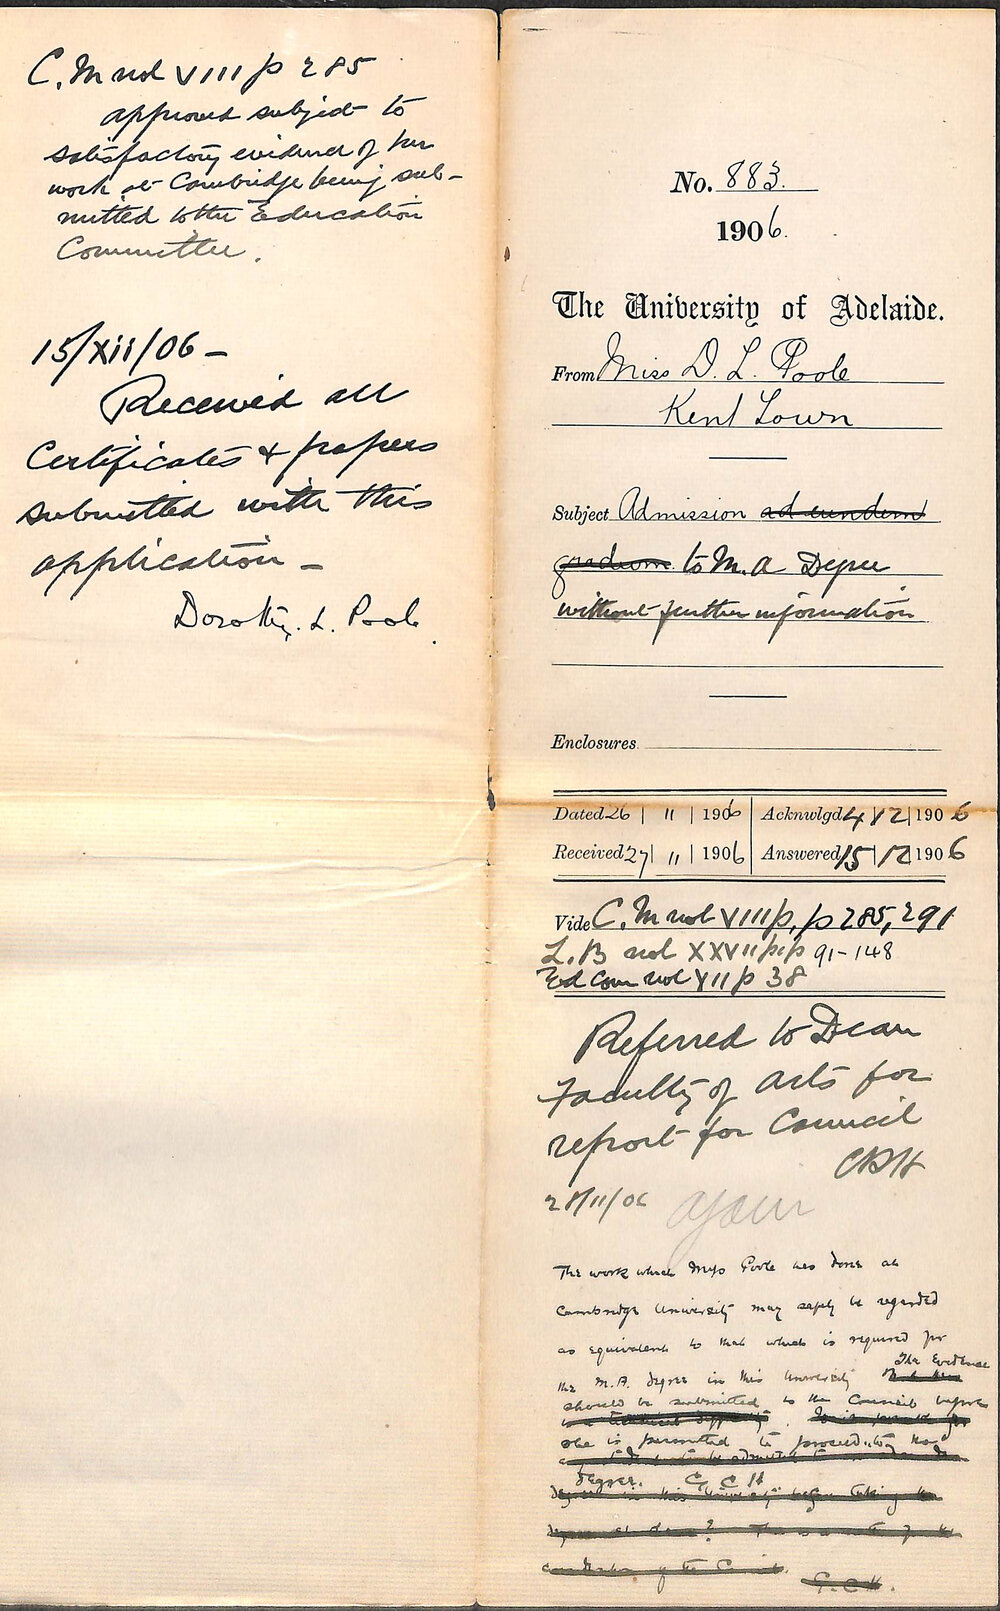 C. M vol VIII p 285
approved subject to
satisfactory evidence of her
work at Cambridge being sub-
mitted to the Education
Committee.
15/xii/06 –
Received all
Certificates & papers
submitted with this
application –
Dorothy. L. Poole.
No. 883.
1906.
The University of Adelaide.
From Miss D. L. Poole
Kent Town
Subject Admission ad eundem
gradum to M. A Degree
without further information
Enclosures
Dated 26 | 11 | 1906 Acknwlgd 4 | 12 | 1906
Received 27 | 11 | 1906 Answered 15 | 12 | 1906
Vide C. M vol VIII p, p 285, 291
L. B vol XXVII pp 91-148
Ed Com vol VII p 38
Referred to Dean
Faculty of Arts for
report for Council
CRH
28/11/06
The work which Miss Poole has done at
Cambridge University may safely be regarded
as equivalent to that which is required for
the M.A. degree in this University The Evidence
should be submitted to the Council before
she is permitted to proceed to the
degree. G C H
G. C. H.